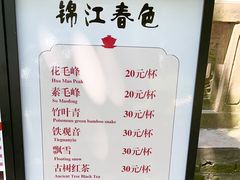 锦江春色
花毛峰 20元/杯
Hua Mao Peak
素毛峰 20元/杯
Su Maofeng
竹叶青 30元/杯
Poisonous green bamboo snake
铁观音 30元/杯
Tieguanyin
飘雪 30元/杯
Floating snow
古树红茶 30元/杯
Ancient Tree Black Tea